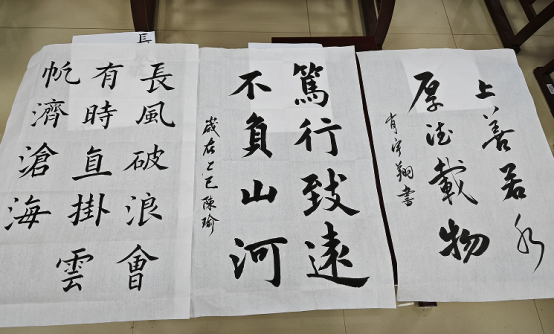 上善若水
厚德載物
肖宇翔書
篤行致遠
不負山河
歲在乙巳陳瑜
長風破浪會
有時直掛雲
帆濟滄海
長